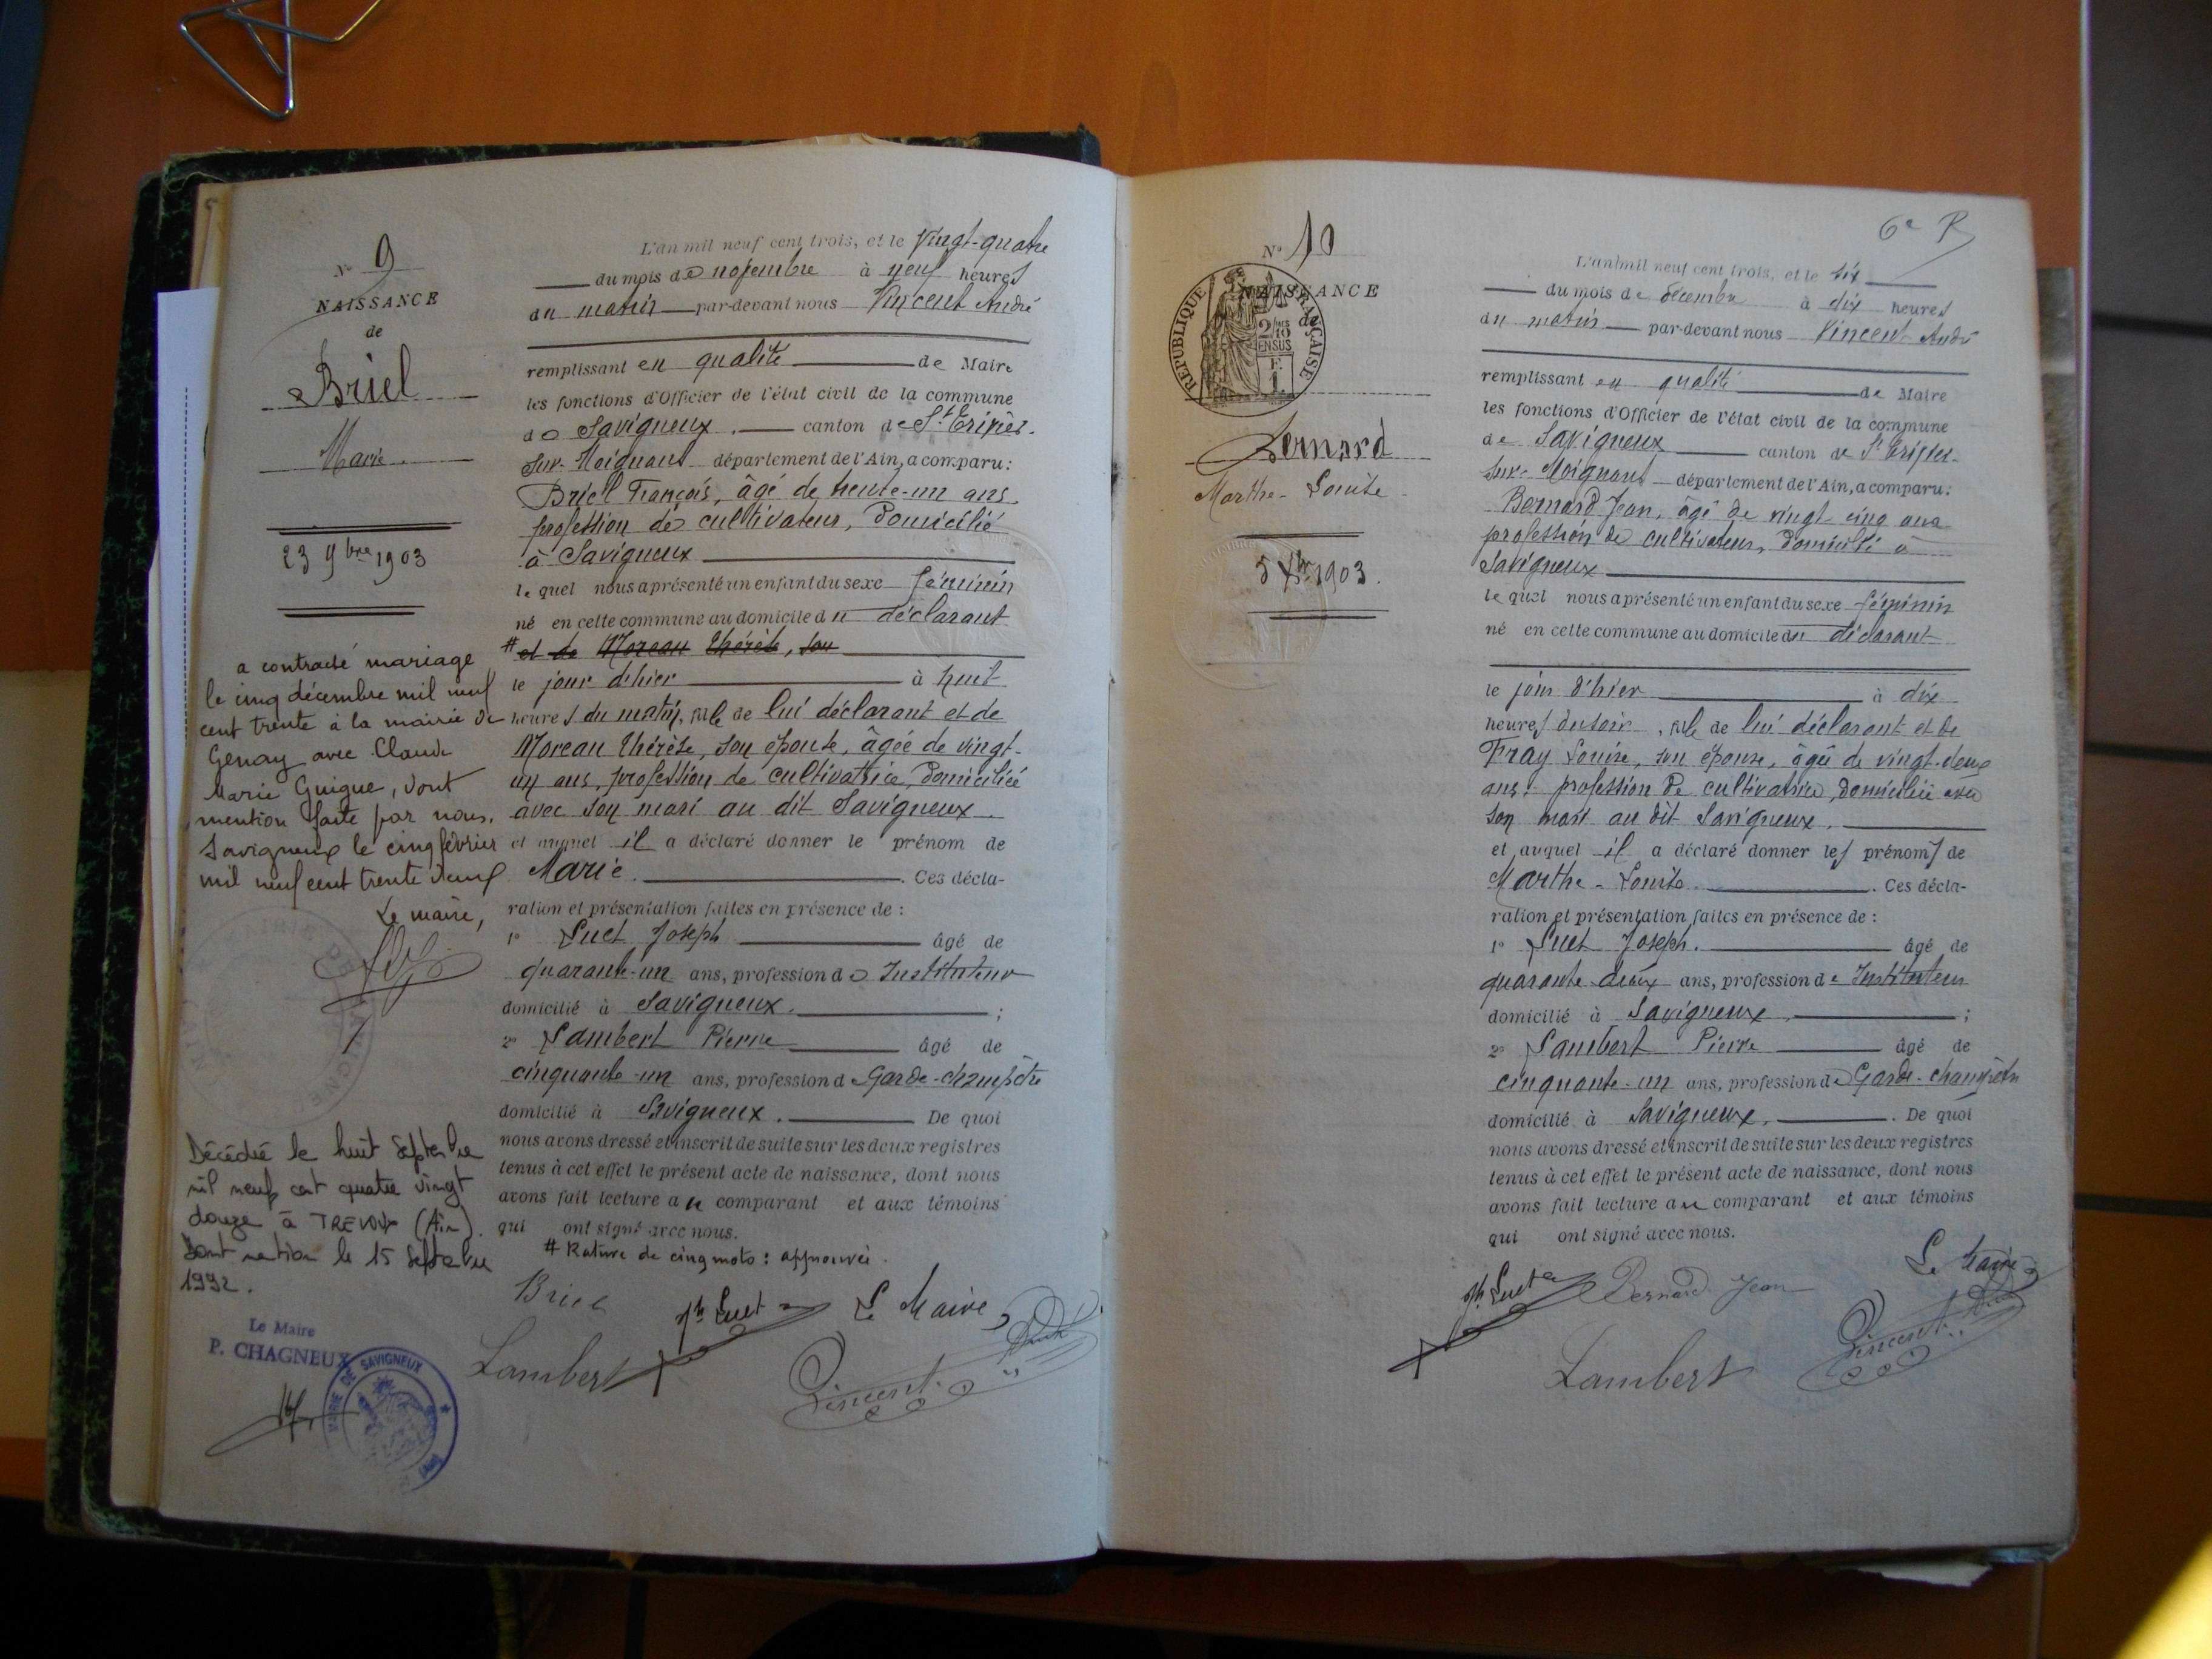 N° 9
NAISSANCE
de
Briel
Marie
23 9bre 1903
a contracté mariage
le cinq décembre mil neuf
cent trente à la mairie de
Genay avec Claude
Marie Guigue, dont
mention faite par nous.
Savigneux le cinq février
mil neuf cent trente deux
Le maire,
Décédée le huit Septembre
mil neuf cent quatre vingt
douze à TREVOUX (Ain).
Dont mention le 15 Septembre
1992.
Le Maire
P. CHAGNEUX
MAIRIE DE SAVIGNEUX
L'an mil neuf cent trois, et le vingt-quatre
du mois de novembre à neuf heures
du matin par-devant nous Vincent André
remplissant en qualité de Maire
les fonctions d'Officier de l'état civil de la commune
de Savigneux. canton de St Trivier-
sur-Moignans département de l'Ain, a comparu:
Briel François, âgé de trente-un ans,
profession de cultivateur, domicilié
à Savigneux
lequel nous a présenté un enfant du sexe féminin
né en cette commune au domicile du déclarant
# et de Moreau Thérèse, son
le jour d'hier à huit
heures du matin, fille de lui déclarant et de
Moreau Thérèse, son épouse, âgée de vingt-
un ans, profession de cultivatrice, domiciliée
avec son mari au dit Savigneux.
et auquel il a déclaré donner le prénom de
Marie. Ces décla-
ration et présentation faites en présence de :
1° Suet Joseph âgé de
quarante-un ans, profession de Instituteur
domicilié à Savigneux. ;
2° Lambert Pierre âgé de
cinquante-un ans, profession de Garde-champêtre
domicilié à Savigneux. De quoi
nous avons dressé et inscrit de suite sur les deux registres
tenus à cet effet le présent acte de naissance, dont nous
avons fait lecture au comparant et aux témoins
qui ont signé avec nous.
# Rature de cinq mots : approuvée.
Briel
Jh Suet
Le Maire,
Lambert
Vincent André
6e R
N° 10
NAISSANCE
de
RÉPUBLIQUE FRANÇAISE
2/10
EN SUS
F.
1
Bernard
Marthe-Louise
5 Xbre 1903.
L'an mil neuf cent trois, et le six
du mois de décembre à dix heures
du matin par-devant nous Vincent André
remplissant en qualité de Maire
les fonctions d'Officier de l'état civil de la commune
de Savigneux canton de St Trivier-
sur-Moignans département de l'Ain, a comparu:
Bernard Jean, âgé de vingt-cinq ans
profession de cultivateur, domicilié à
Savigneux
lequel nous a présenté un enfant du sexe féminin
né en cette commune au domicile du déclarant
le jour d'hier à dix
heures du soir, fille de lui déclarant et de
Fray Louise, son épouse, âgée de vingt-deux
ans, profession de cultivatrice, domiciliée avec
son mari au dit Savigneux.
et auquel il a déclaré donner les prénoms de
Marthe-Louise. Ces décla-
ration et présentation faites en présence de :
1° Suet Joseph. âgé de
quarante-deux ans, profession de Instituteur
domicilié à Savigneux. ;
2° Lambert Pierre âgé de
cinquante-un ans, profession de Garde-champêtre
domicilié à Savigneux. De quoi
nous avons dressé et inscrit de suite sur les deux registres
tenus à cet effet le présent acte de naissance, dont nous
avons fait lecture au comparant et aux témoins
qui ont signé avec nous.
Jh Suet
Bernard Jean
Le Maire
Lambert
Vincent André